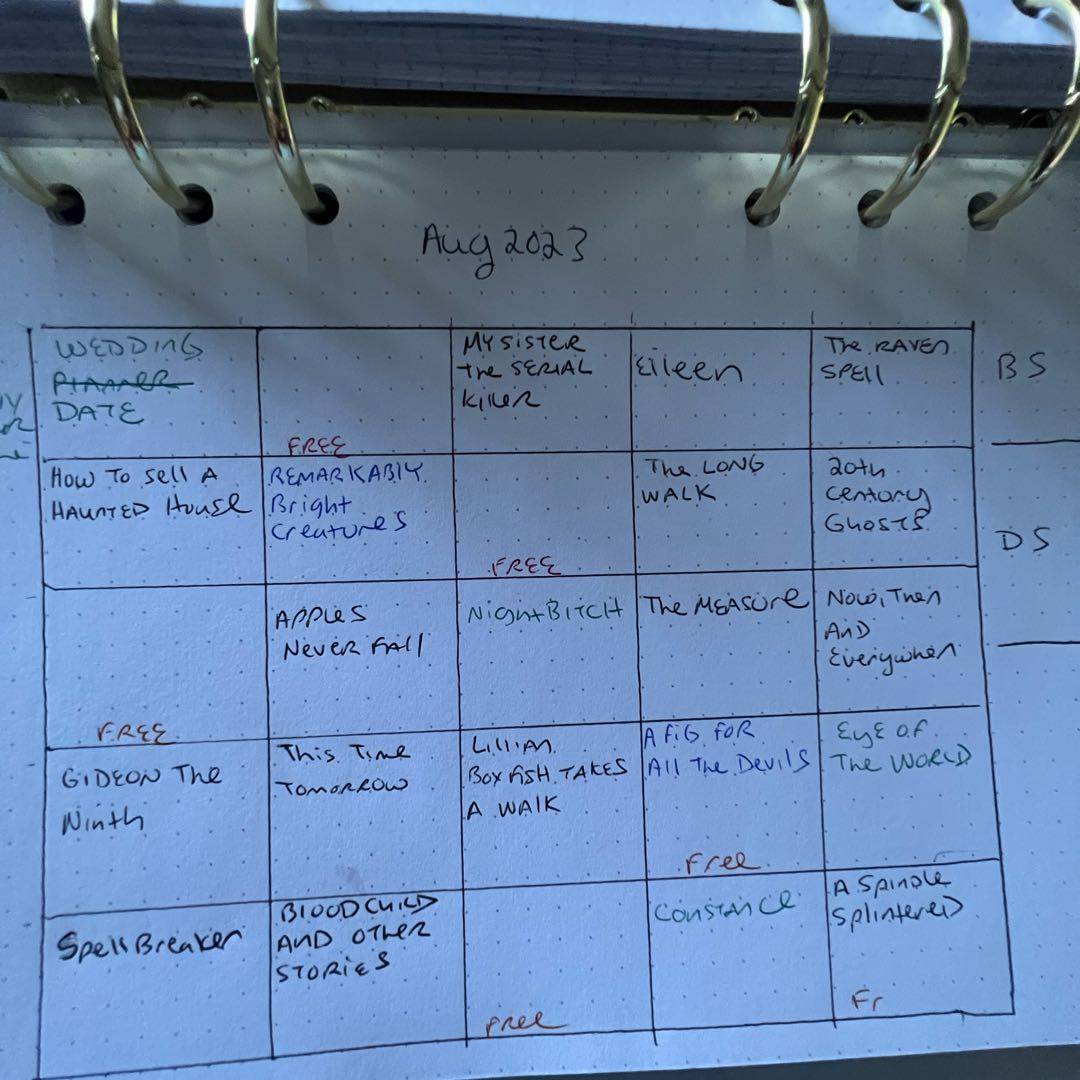 Aug 2023
WEDDING
PLANNER
DATE
FREE
MY SISTER
the SERIAL
Killer
Eileen
The RAVEN
SPELL
BS
How To Sell A
HAUNTED House
REMARKABLY
Bright
Creatures
FREE
The LONG
WALK
20th
Century
GHOSTS
DS
FREE
APPLES
NEVER FAll
NightBITCH
The MEASURE
Now, Then
And
Everywhen
GIDEON The
Ninth
This Time
TOMORROW
LILLIAN
BOXFISH TAKES
A WALK
A FIG FOR
All The Devils
Free
EYE OF
The WORLD
SpellBreaker
BLOODCHILD
AND OTHER
STORIES
Free
CONSTANCE
A Spindle
Splintered
Fr